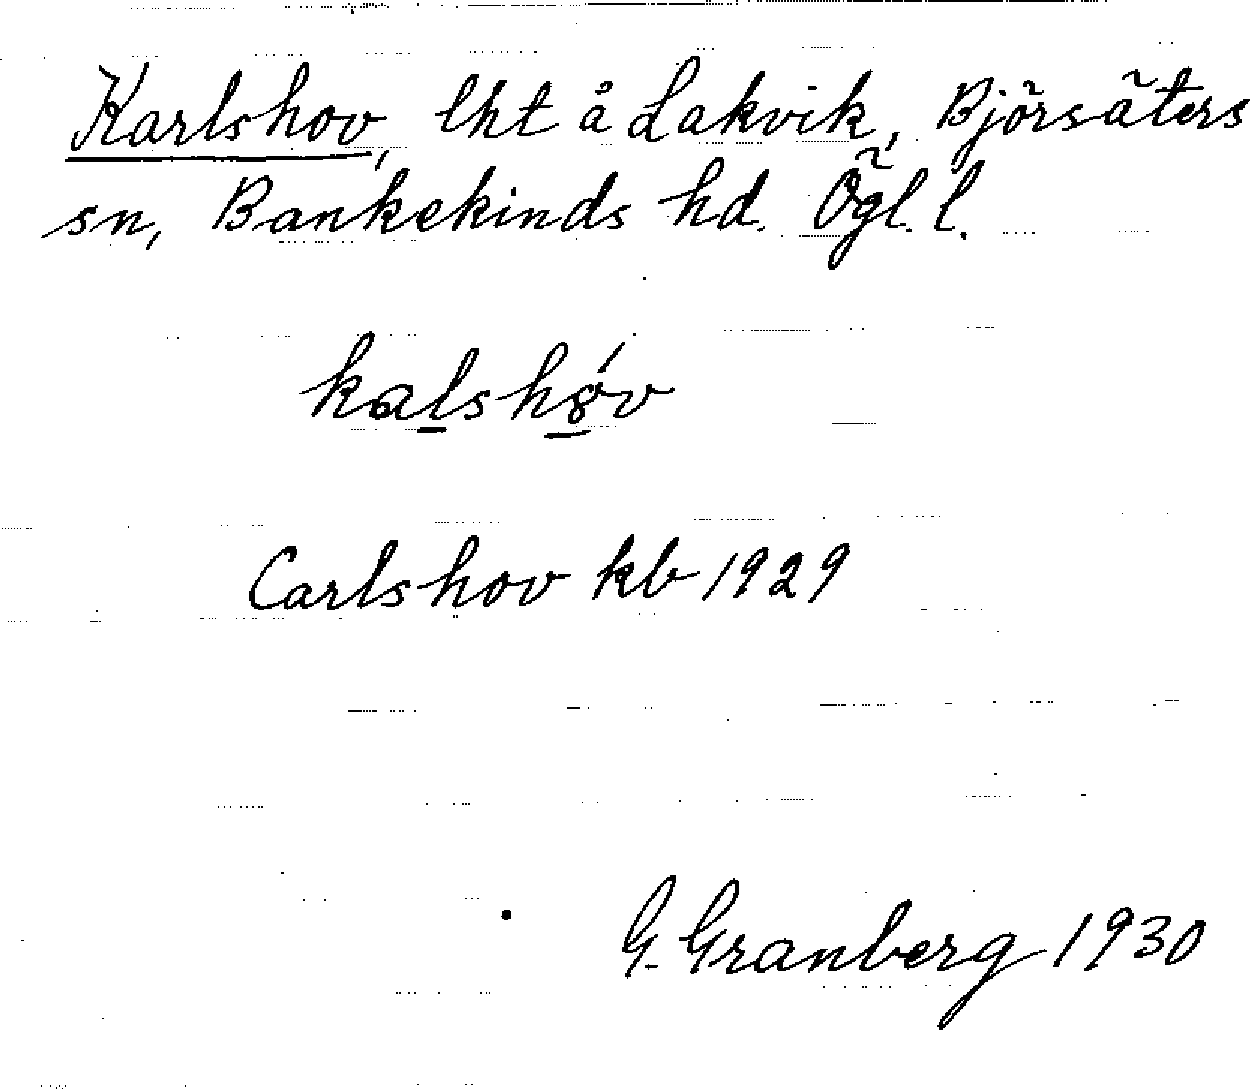 Karlshov, lht å Lakvik, Björsäters
sn, Bankekinds hd. Ögl. l.
kalshȯ́v
Carlshov kb 1929
G. Granberg 1930